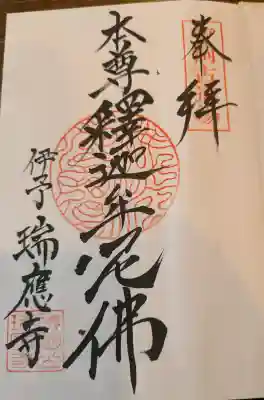 奉拜
本尊釋迦牟尼佛
伊予瑞應寺